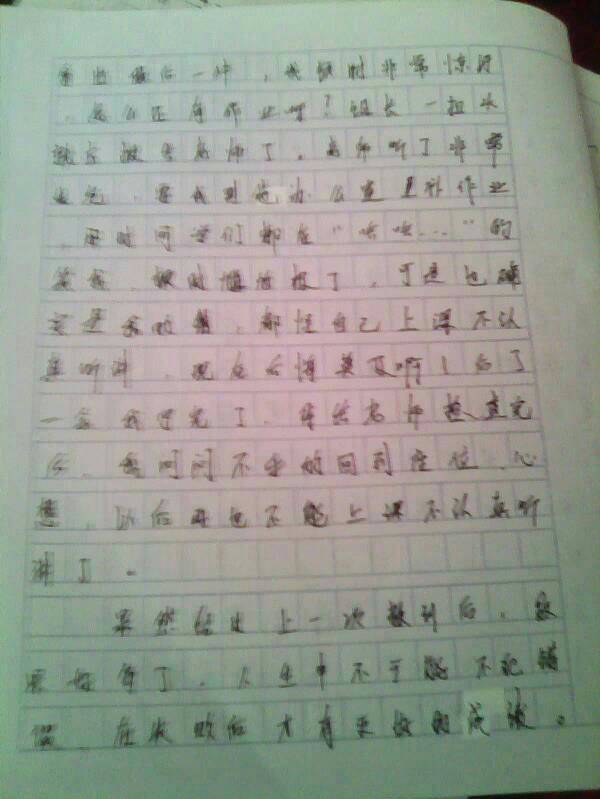 最后一种,我顿时非常惊讶
,怎么还有作业呀?组长一扭头
就去报告老师了。老师听了非常
生气,要我到他办公室里补作业
,那时同学们都在“哄哄…”的
笑我,顿时极了,可这也确
实是我的错,都怪自己上课不认
真听讲,现在后悔莫及啊!后了
一会我写完了,等给老师检查完
后,我闷闷不乐的回到座位,心
想,以后再也不能上课不认真听
讲了。
果然经过上一次教训后,我
好了,人生中不可能不犯错
,在失败后才有更好的成。